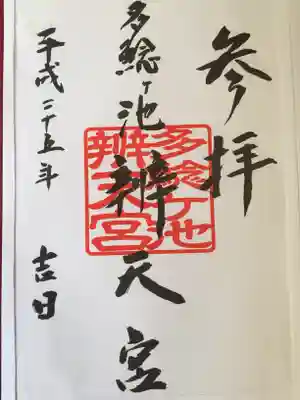 参拝
多鯰ヶ池
辨天宮
平成二十五年 吉日
多鯰ヶ池
辨天宮